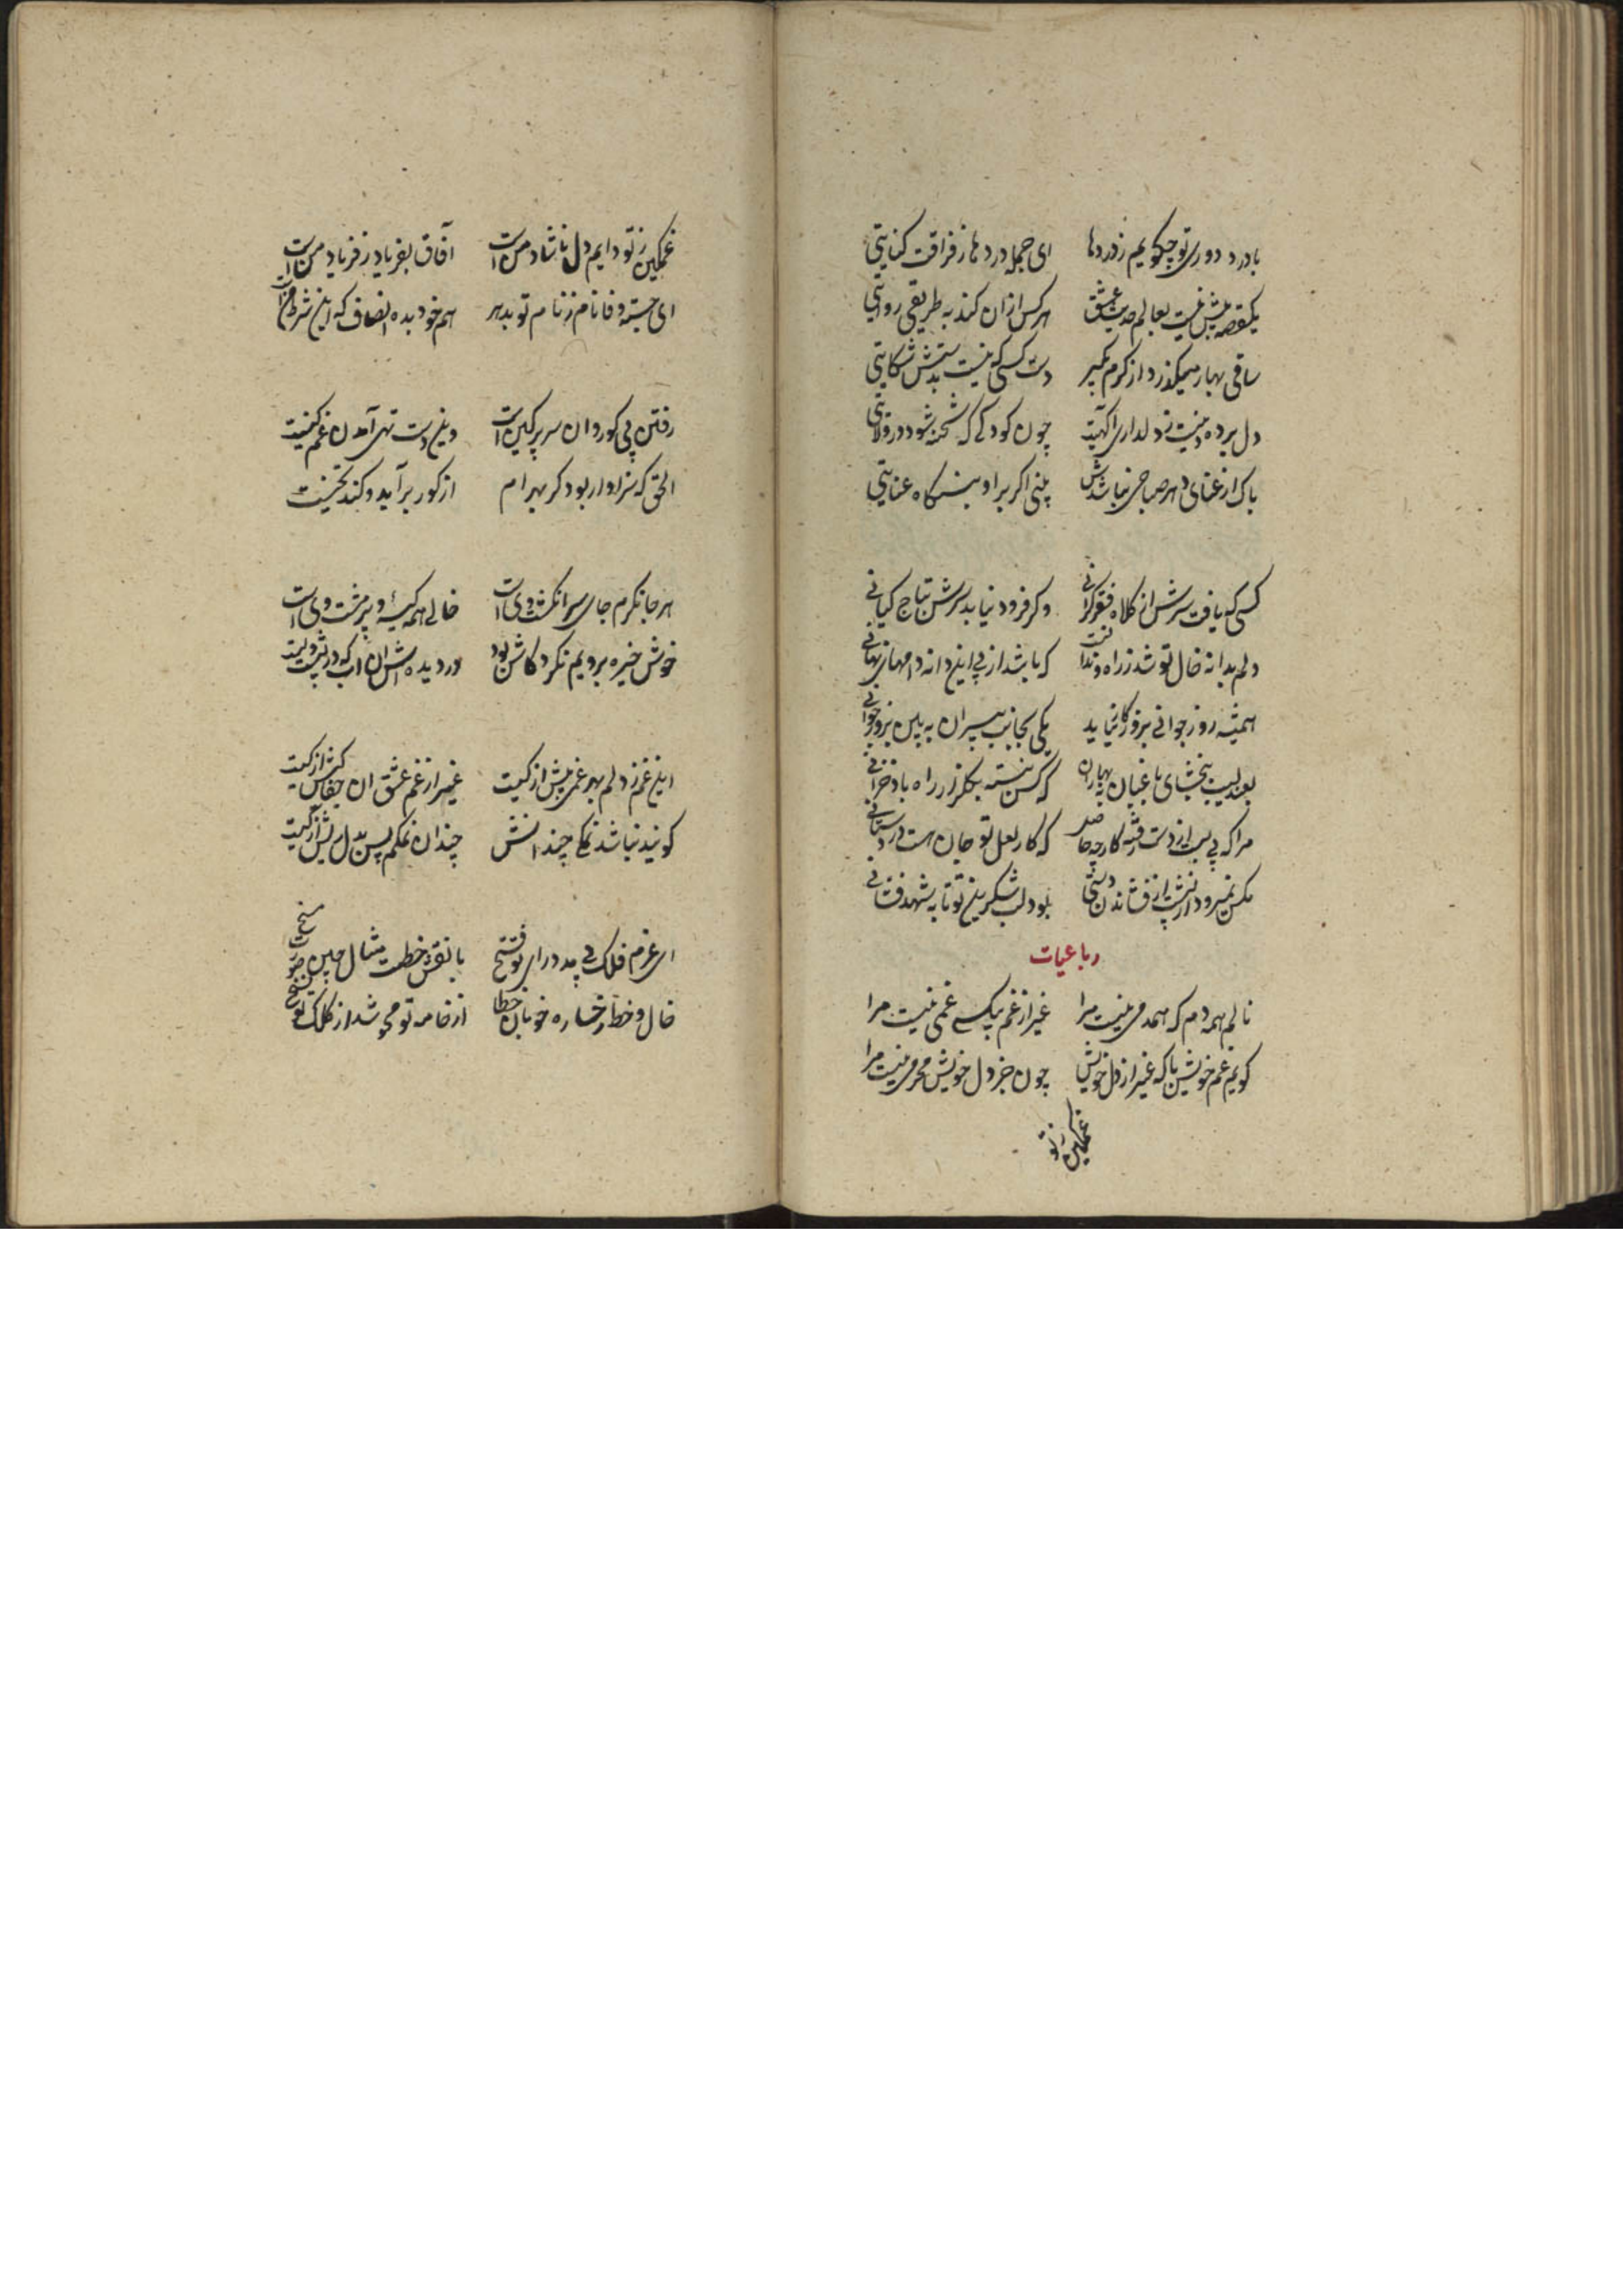 بادرد دوری تو چکویم ز دردها ای جمله دردها ز فراقت کنایتی
یکقصه بیش نیست بعالم حدیث عشق هر کس از ان کند به طریقی روایتی
ساقی بهار میکذرد از کرم بکیر دست کسی که نیست بدستش شکایتی
دل برده و نیست ز دلداری آکهیت چون کودکی که شحنه شود در ولایتی
باک از غنای هر صاحبی نباشدش بینی اگر بر او بنگاه عنایتی
کسی که یافت سرش از کلاه فقر کرانی و کر فرود نیاید سرش بتاج کیانی
دلم بدانه خال تو شد ز راه و ندانست که باشد از پی این دانه دامهای نهانی
همیشه روز جوانی بروزکار نپاید یکی بجانب پیران به بین بروز جوانی
بعندلیب ببخشای باغبان بهاران که کس نبسته بکلزار راه باد خزانی
مرا که پی سپر از دست رفته کار چه حاصل که کار لعل تو جان است در دستانی
مکس نمیرود از پیش از فشاندن دستی بود لب شکرین تو تا به شهد فشانی
رباعیات
نالم همه دم که همدمی نیست مرا غیر از غم بیکسی غمی نیست مرا
کویم غم خویش با که غیر از دل خویش چون جز دل خویش محرمی نیست مرا
غمکین ز تو
غمکین ز تو دایم دل ناشاد من است آفاق بفریاد ز فریاد من است
ای جسته وفا نام ز نام تو بدهر هم خود بده انصاف که این شرط
رفتن پی کوروان سر پر کین است وین دست تهی آمدن غمکینست
الحق که سزاوار بود کر بهرام از کور برآید و کند تحسینت
هر جا نکرم جای سر انکشت وی است خالی همه کیسه و پر مشت وی است
خوش خیره برویم نکرد کاش بود در دیده اش ان که در پشت ویست
این غم ز دلم بهر غمی بیش از کیست غیر از غم عشق ان جفاکیش از کیست
کویند نباشد نمکی چندانش چندان نمکم پس بدل ریش از کیست
ای عزم فلک پی مدد رای تو فتح با نقش خطت مثال چین
خال و خط رخساره خوبان خطا از خامه تو محو شد از کلک تو نسخ